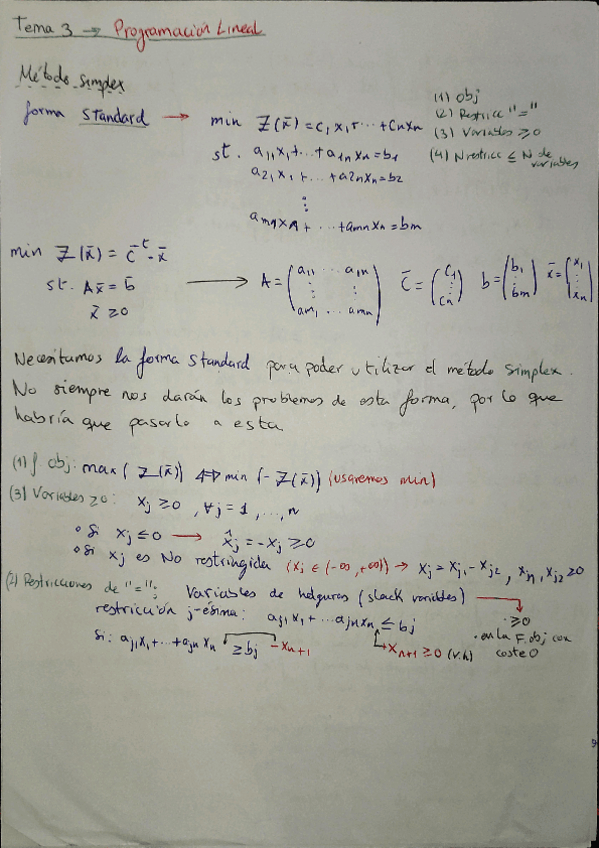 Tema 3 → Programación Lineal
Método simplex
forma standard → min Z(x̄) = c₁x₁ + ... + cnxn
st. a₁₁x₁ + ... + a₁nxn = b₁
a₂₁x₁ + ... + a₂nxn = b₂
⋮
am₁x₁ + ... + amnxn = bm
(1) Obj
(2) Restricc "="
(3) Variables ≥ 0
(4) N restricc ≤ N de variables
min Z(x̄) = c̄ᵗ·x̄
st. Ax̄ = b̄ → A = (a₁₁ ... a₁n ⋮ ⋮ am₁ ... amn) c̄ = (c₁ ⋮ cn) b = (b₁ ⋮ bm) x̄ = (x₁ ⋮ xn)
x̄ ≥ 0
Necesitamos la forma standard para poder utilizar el método simplex.
No siempre nos darán los problemas de esta forma, por lo que
habría que pasarlo a esta
(1) f obj: max(Z(x̄)) ⟺ min(-Z(x̄)) (usaremos min)
(3) Variables ≥ 0: xj ≥ 0, ∀j = 1, ..., n
• Si xj ≤ 0 → x̂j = -xj ≥ 0
• Si xj es No restringida (xj ∈ (-∞, +∞)) → xj = xj₁ - xj₂, xj₁, xj₂ ≥ 0
(2) Restricciones de "=": Variables de holguras (slack variables) →
restricción j-ésima: aj₁x₁ + ... ajnxn ≤ bj
· ≥ 0
· en la F. obj con
coste 0
Si: aj₁x₁ + ... + ajnxn ≥ bj - xn+1
+ xn+1 ≥ 0 (v.h)
9